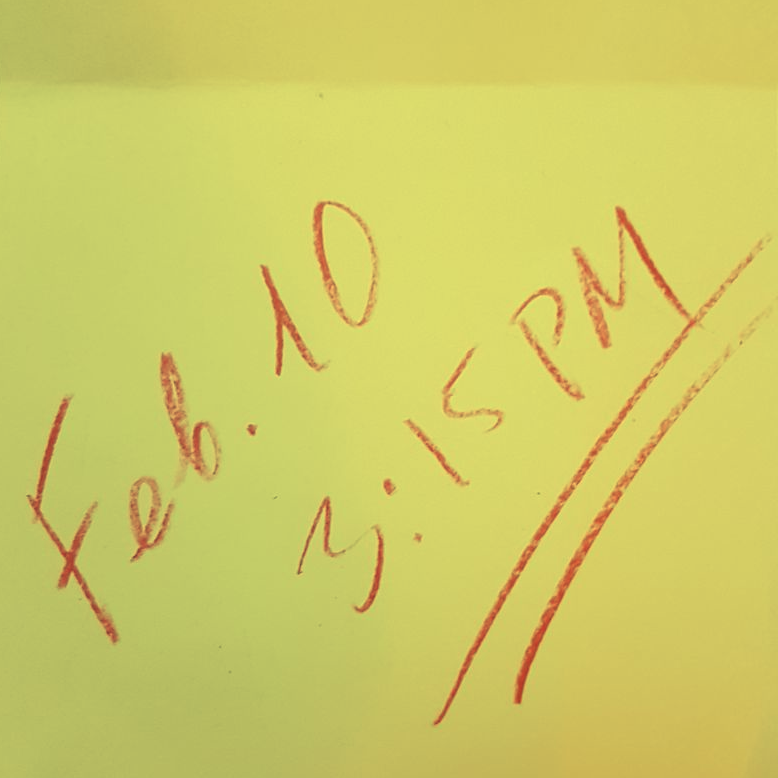 Feb. 10
3:15 PM